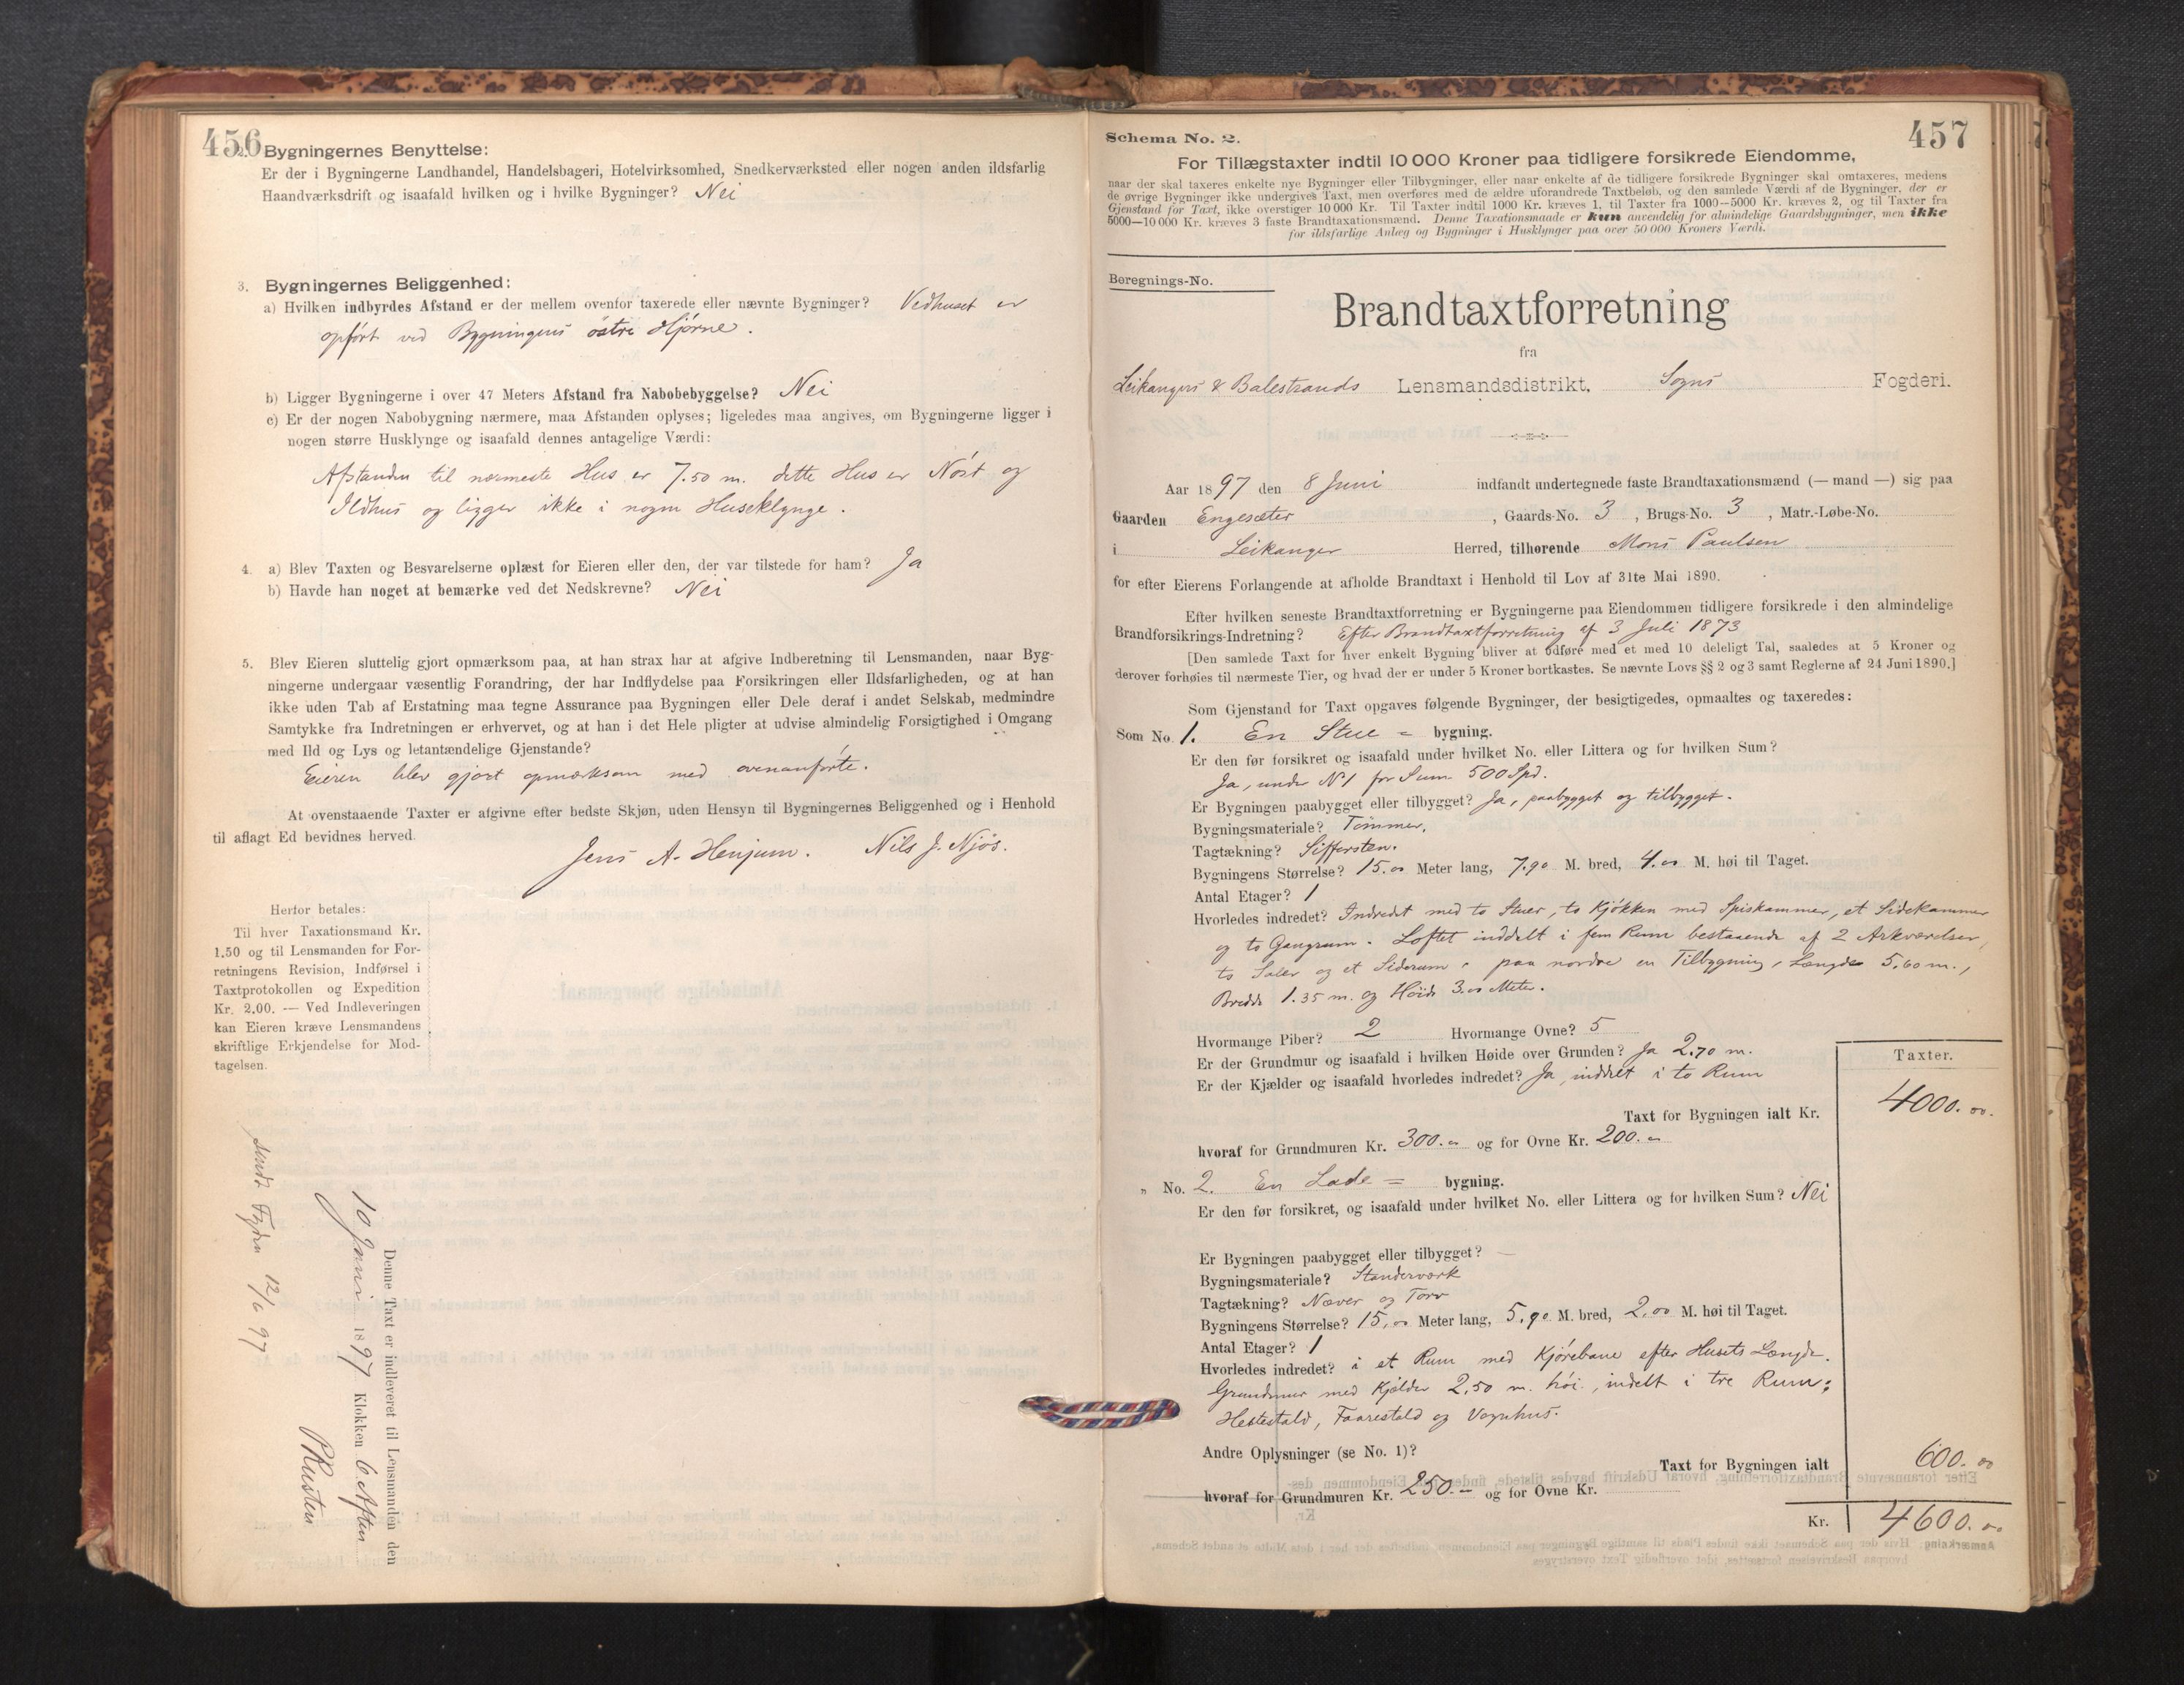 456
2. Bygningernes Benyttelse:
Er der i Bygningerne Landhandel, Handelsbageri, Hotelvirksomhed, Snedkerværksted eller nogen anden ildsfarlig
Haandværksdrift og isaafald hvilken og i hvilke Bygninger? Nei
3. Bygningernes Beliggenhed:
a) Hvilken indbyrdes Afstand er der mellem ovenfor taxerede eller nævnte Bygninger? Vedhuset er
opført ved Bygningens østre Hjørne.
b) Ligger Bygningerne i over 47 Meters Afstand fra Nabobebyggelse? Nei
c) Er der nogen Nabobygning nærmere, maa Afstanden oplyses; ligeledes maa angives, om Bygningerne ligger i
nogen større Husklynge og isaafald dennes antagelige Værdi:
Afstanden til nærmeste Hus er 7.50 m. dette Hus er Nøst og
Ildhus og ligger ikke i nogen Huseklynge.
4. a) Blev Taxten og Besvarelserne oplæst for Eieren eller den, der var tilstede for ham? Ja
b) Havde han noget at bemærke ved det Nedskrevne? Nei
5. Blev Eieren sluttelig gjort opmærksom paa, at han strax har at afgive Indberetning til Lensmanden, naar Byg-
ningerne undergaar væsentlig Forandring, der har Indflydelse paa Forsikringen eller Ildsfarligheden, og at han
ikke uden Tab af Erstatning maa tegne Assurance paa Bygningen eller Dele deraf i andet Selskab, medmindre
Samtykke fra Indretningen er erhvervet, og at han i det Hele pligter at udvise almindelig Forsigtighed i Omgang
med Ild og Lys og letantændelige Gjenstande?
Eieren blev gjort opmærksom med ovenanførte.
At ovenstaaende Taxter er afgivne efter bedste Skjøn, uden Hensyn til Bygningernes Beliggenhed og i Henhold
til aflagt Ed bevidnes herved.
Jens A. Henjum. Nils J. Njøs.
Herfor betales:
Til hver Taxationsmand Kr.
1.50 og til Lensmanden for For-
retningens Revision, Indførsel i
Taxtprotokollen og Expedition
Kr. 2.00. — Ved Indleveringen
kan Eieren kræve Lensmandens
skriftlige Erkjendelse for Mod-
tagelsen.
Denne Taxt er indleveret til Lensmanden den
10 Juni 1897 Klokken 6 Aften
sendt 12/6 97
457
Schema No. 2.
For Tillægstaxter indtil 10 000 Kroner paa tidligere forsikrede Eiendomme,
naar der skal taxeres enkelte nye Bygninger eller Tilbygninger, eller naar enkelte af de tidligere forsikrede Bygninger skal omtaxeres, medens
de øvrige Bygninger ikke undergives Taxt, men overføres med de ældre uforandrede Taxtbeløb, og den samlede Værdi af de Bygninger, der er
Gjenstand for Taxt, ikke overstiger 10 000 Kr. Til Taxter indtil 1000 Kr. kræves 1, til Taxter fra 1000—5000 Kr. kræves 2, og til Taxter fra
5000—10 000 Kr. kræves 3 faste Brandtaxationsmænd. Denne Taxationsmaade er kun anvendelig for almindelige Gaardsbygninger, men ikke
for ildsfarlige Anlæg og Bygninger i Husklynger paa over 50 000 Kroners Værdi.
Beregnings-No.
Brandtaxtforretning
fra
Leikangers & Balestrands Lensmandsdistrikt, Sogns Fogderi.
Aar 1897 den 8 Juni indfandt undertegnede faste Brandtaxationsmænd (— mand —) sig paa
Gaarden Engesæter, Gaards-No. 3, Brugs-No. 3, Matr.-Løbe-No.
i Leikanger Herred, tilhørende Mons Paulsen
for efter Eierens Forlangende at afholde Brandtaxt i Henhold til Lov af 31te Mai 1890.
Efter hvilken seneste Brandtaxtforretning er Bygningerne paa Eiendommen tidligere forsikrede i den almindelige
Brandforsikrings-Indretning? Efter Brandtaxtforretning af 3 Juli 1873
[Den samlede Taxt for hver enkelt Bygning bliver at udføre med et med 10 deleligt Tal, saaledes at 5 Kroner og
derover forhøies til nærmeste Tier, og hvad der er under 5 Kroner bortkastes. Se nævnte Lovs §§ 2 og 3 samt Reglerne af 24 Juni 1890.]
Som Gjenstand for Taxt opgaves følgende Bygninger, der besigtigedes, opmaaltes og taxeredes:
Som No. 1. En Stue = bygning.
Er den før forsikret og isaafald under hvilket No. eller Littera og for hvilken Sum?
Ja, under N 1 for Sum 500 Spd.
Er Bygningen paabygget eller tilbygget? Ja, paabygget og tilbygget.
Bygningsmateriale? Tømmer.
Tagtækning? Siffersten.
Bygningens Størrelse? 15.00 Meter lang, 7.90 M. bred, 4.00 M. høi til Taget.
Antal Etager? 1
Hvorledes indredet? Indredet med to Stuer, to Kjøkken med Spiskammer, et Sidekammer
og to Gangrum. Loftet inddelt i fem Rum bestaaende af 2 Arkværelser,
to Saler og et Siderum, paa nordre en Tilbygning, Længde 5.60 m.,
Bredde 1.35 m. og Høide 3.00 Meter.
Hvormange Piber? 2 Hvormange Ovne? 5
Er der Grundmur og isaafald i hvilken Høide over Grunden? Ja 2.70 m.
Er der Kjælder og isaafald hvorledes indredet? Ja, inddelt i to Rum
Taxter.
Taxt for Bygningen ialt Kr. 4000.00.
hvoraf for Grundmuren Kr. 300.00 og for Ovne Kr. 200.00
" No. 2. En Lade = bygning.
Er den før forsikret, og isaafald under hvilket No. eller Littera og for hvilken Sum? Nei
Er Bygningen paabygget eller tilbygget? —
Bygningsmateriale? Standerværk
Tagtækning? Næver og Torv
Bygningens Størrelse? 15.00 Meter lang, 5.90 M. bred, 2.00 M. høi til Taget.
Antal Etager? 1
Hvorledes indredet? i et Rum med Kjørebane efter Husets Længde.
Grundmur med Kjelder 2.50 m. høi, indelt i tre Rum:
Hestestald, Faarestald og Vognhus.
Andre Oplysninger (se No. 1)?
Taxt for Bygningen ialt 600.00
hvoraf for Grundmuren Kr. 250.— og for Ovne Kr.
Kr. 4600.00